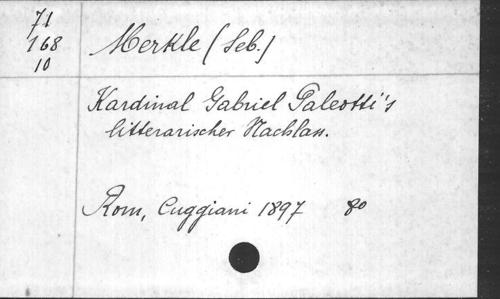 71
168
10
Merkle (Seb.)
Kardinal Gabriel Paleotti's
litterarischer Nachlass.
Rom, Cuggiani 1897 8o